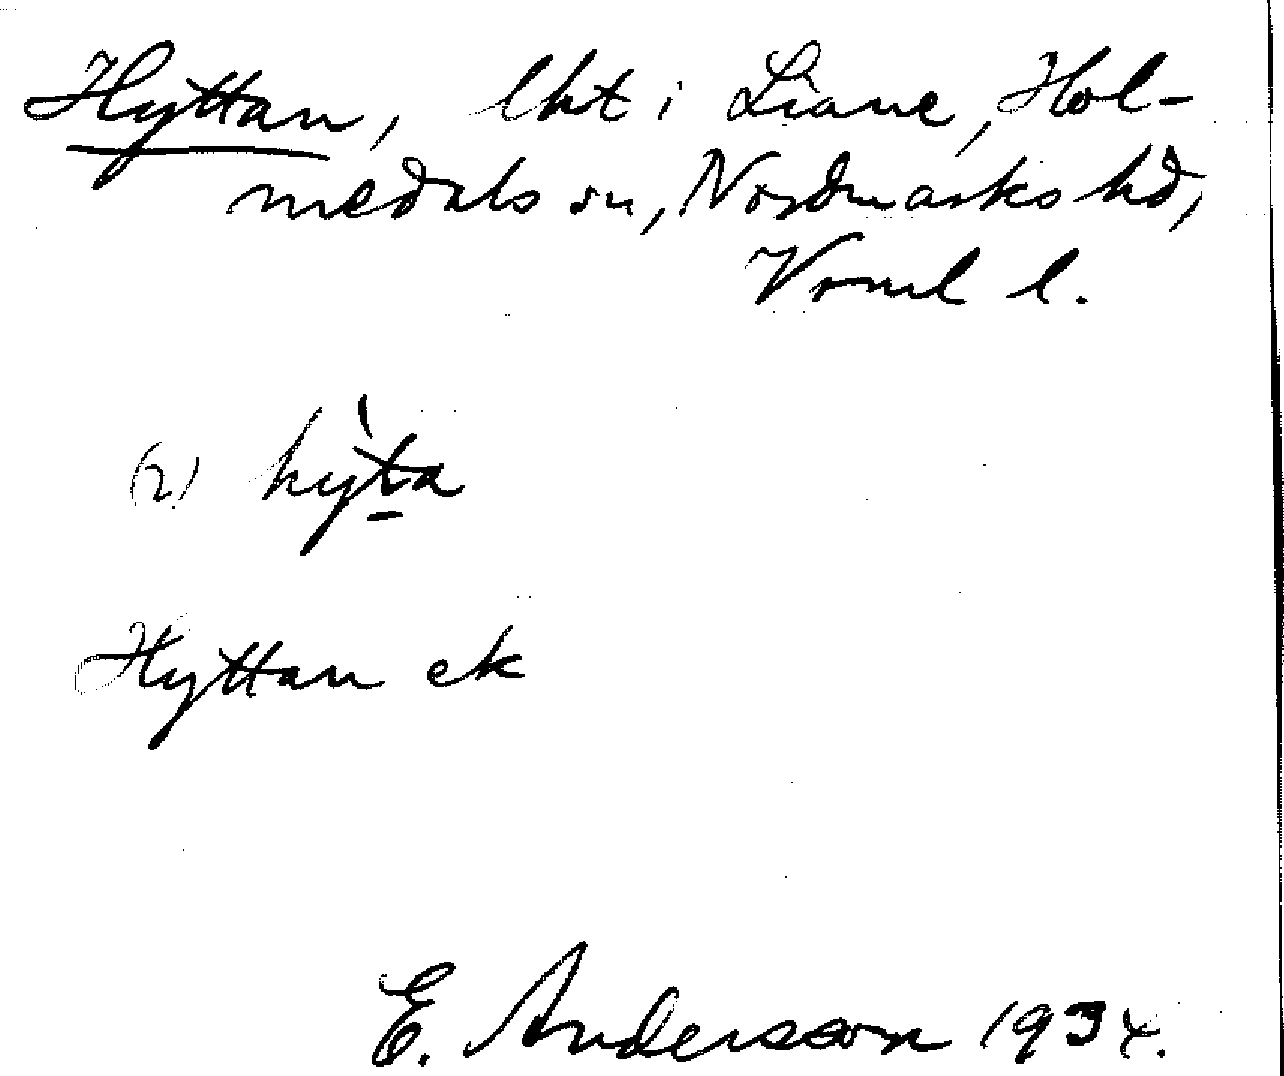 Hyttan, lht i Liane, Hol-
medals sn, Nordmarks hd,
Vrml l.
(2) hy̍t̠a
Hyttan ek
E. Andersson 1934.